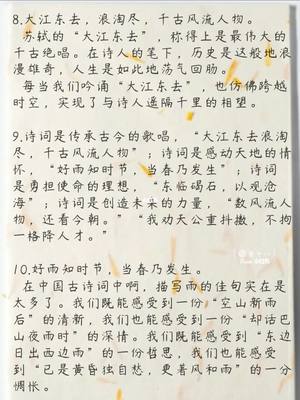 8.大江东去，浪淘尽，千古风流人物。
苏轼的“大江东去”，称得上是最伟大的
千古绝唱。在诗人的笔下，历史是这般地浪
漫雄奇，人生是如此地荡气回肠。
每当我们吟诵“大江东去”，也仿佛跨越
时空，实现了与诗人遥隔千里的相望。
9.诗词是传承古今的歌唱，“大江东去浪淘
尽，千古风流人物”；诗词是感动天地的情
怀，“好雨知时节，当春乃发生”；诗词
是勇担使命的理想，“东临碣石，以观沧
海”；诗词是创造未来的力量，“数风流人
物，还看今朝。”“我劝天公重抖擞，不拘
一格降人才。”
10.好雨知时节，当春乃发生。
在中国古诗词中啊，描写雨的佳句实在是
太多了。我们既能感受到一份“空山新雨
后”的清新，我们也能感受到一份“却话巴
山夜雨时”的深情。我们既能感受到“东边
日出西边雨”的一份哲思，我们也能感受
到“已是黄昏独自愁，更著风和雨”的一份
惆怅。